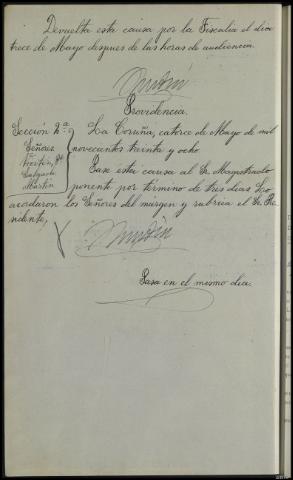 Devuelta esta causa por la Fiscalia el dia
trece de Mayo despues de las horas de audiencia.
Providencia.
Sección 2ª
Señores
Martin
La Coruña, catorce de Mayo de mil
novecientos treinta y ocho
Pase esta causa al Sr. Magistrado
ponente por término de tres dias Lo
acordaron los Señores del márgen y rubrica el Sr. Pre
sidente,
Pasa en el mismo dia.